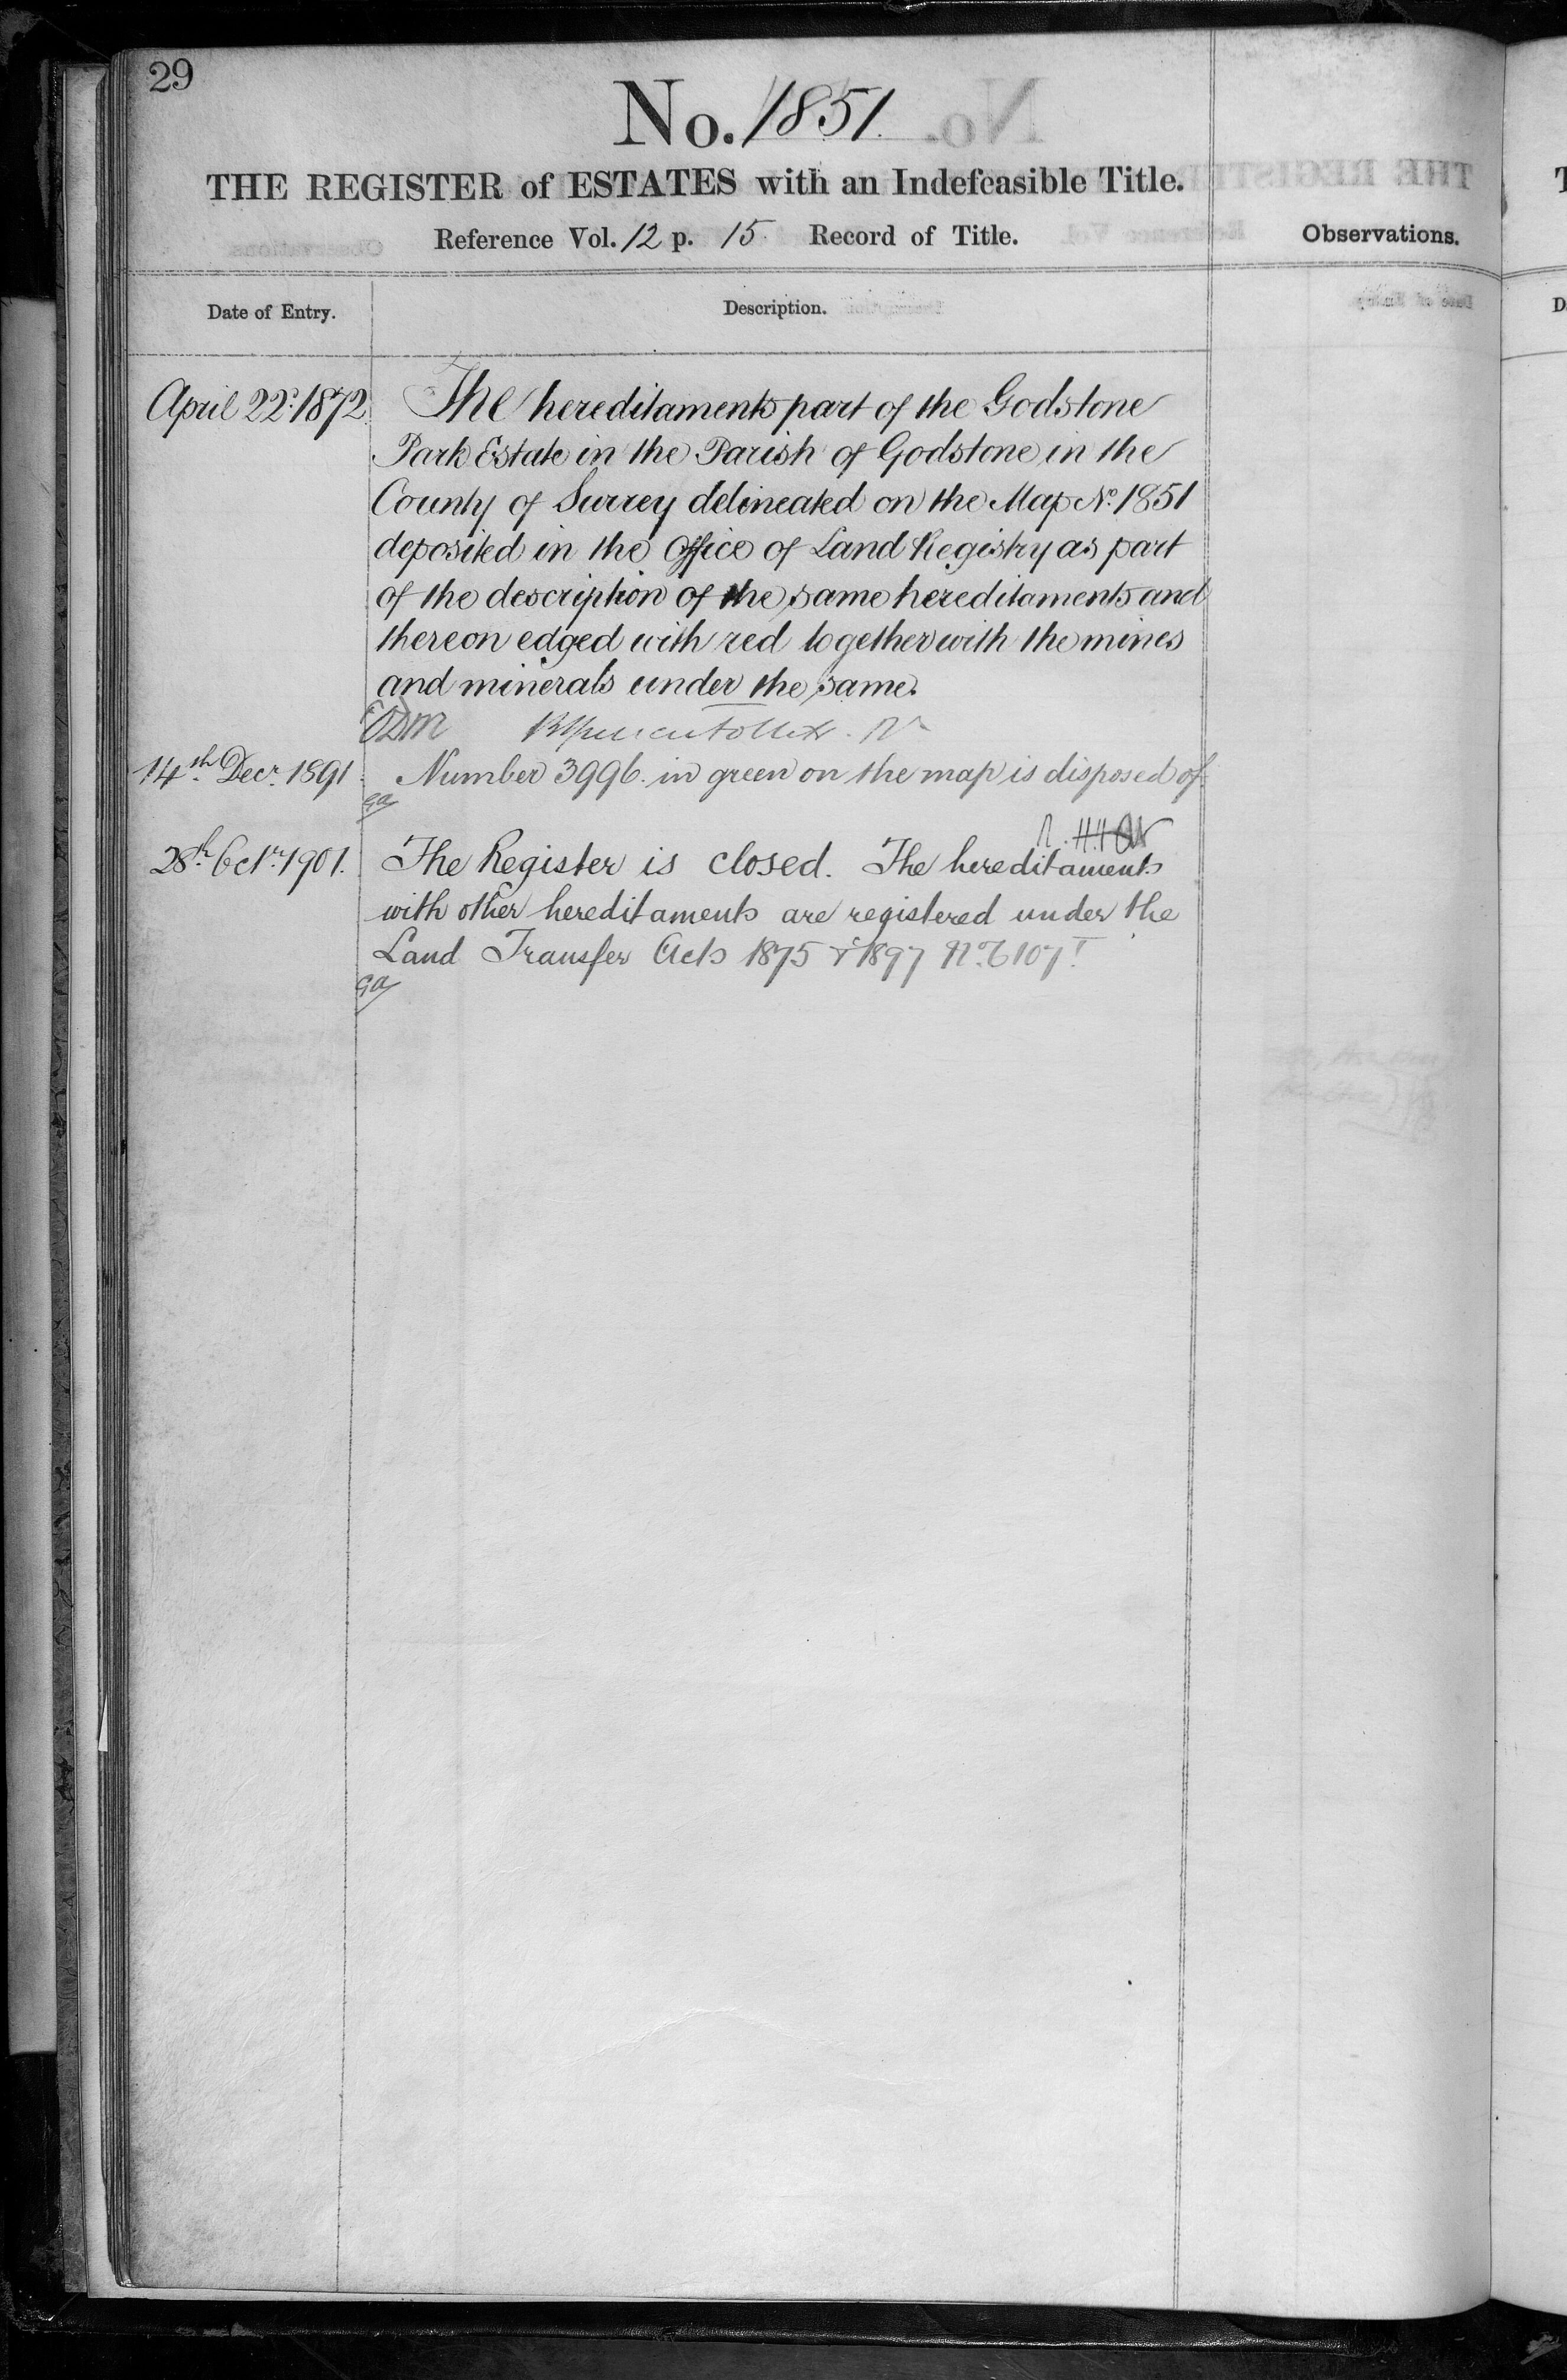 29
No. 1851.
THE REGISTER of ESTATES with an Indefeasible Title.
Reference Vol. 12 p. 15 Record of Title.
Observations.
Date of Entry.
Description.
April 22d. 1872. The hereditaments part of the Godstone
Park Estate in the Parish of Godstone in the
County of Surrey delineated on the Map No. 1851
deposited in the Office of Land Registry as part
of the description of the same hereditaments and
thereon edged with red together with the mines
and minerals under the same.
14th. Decr. 1891. Number 3996. in green on the map is disposed of.
ga
28th. Octr. 1901. The Register is closed. The hereditaments
with other hereditaments are registered under the
Land Transfer Acts 1875 & 1897 No.
ga